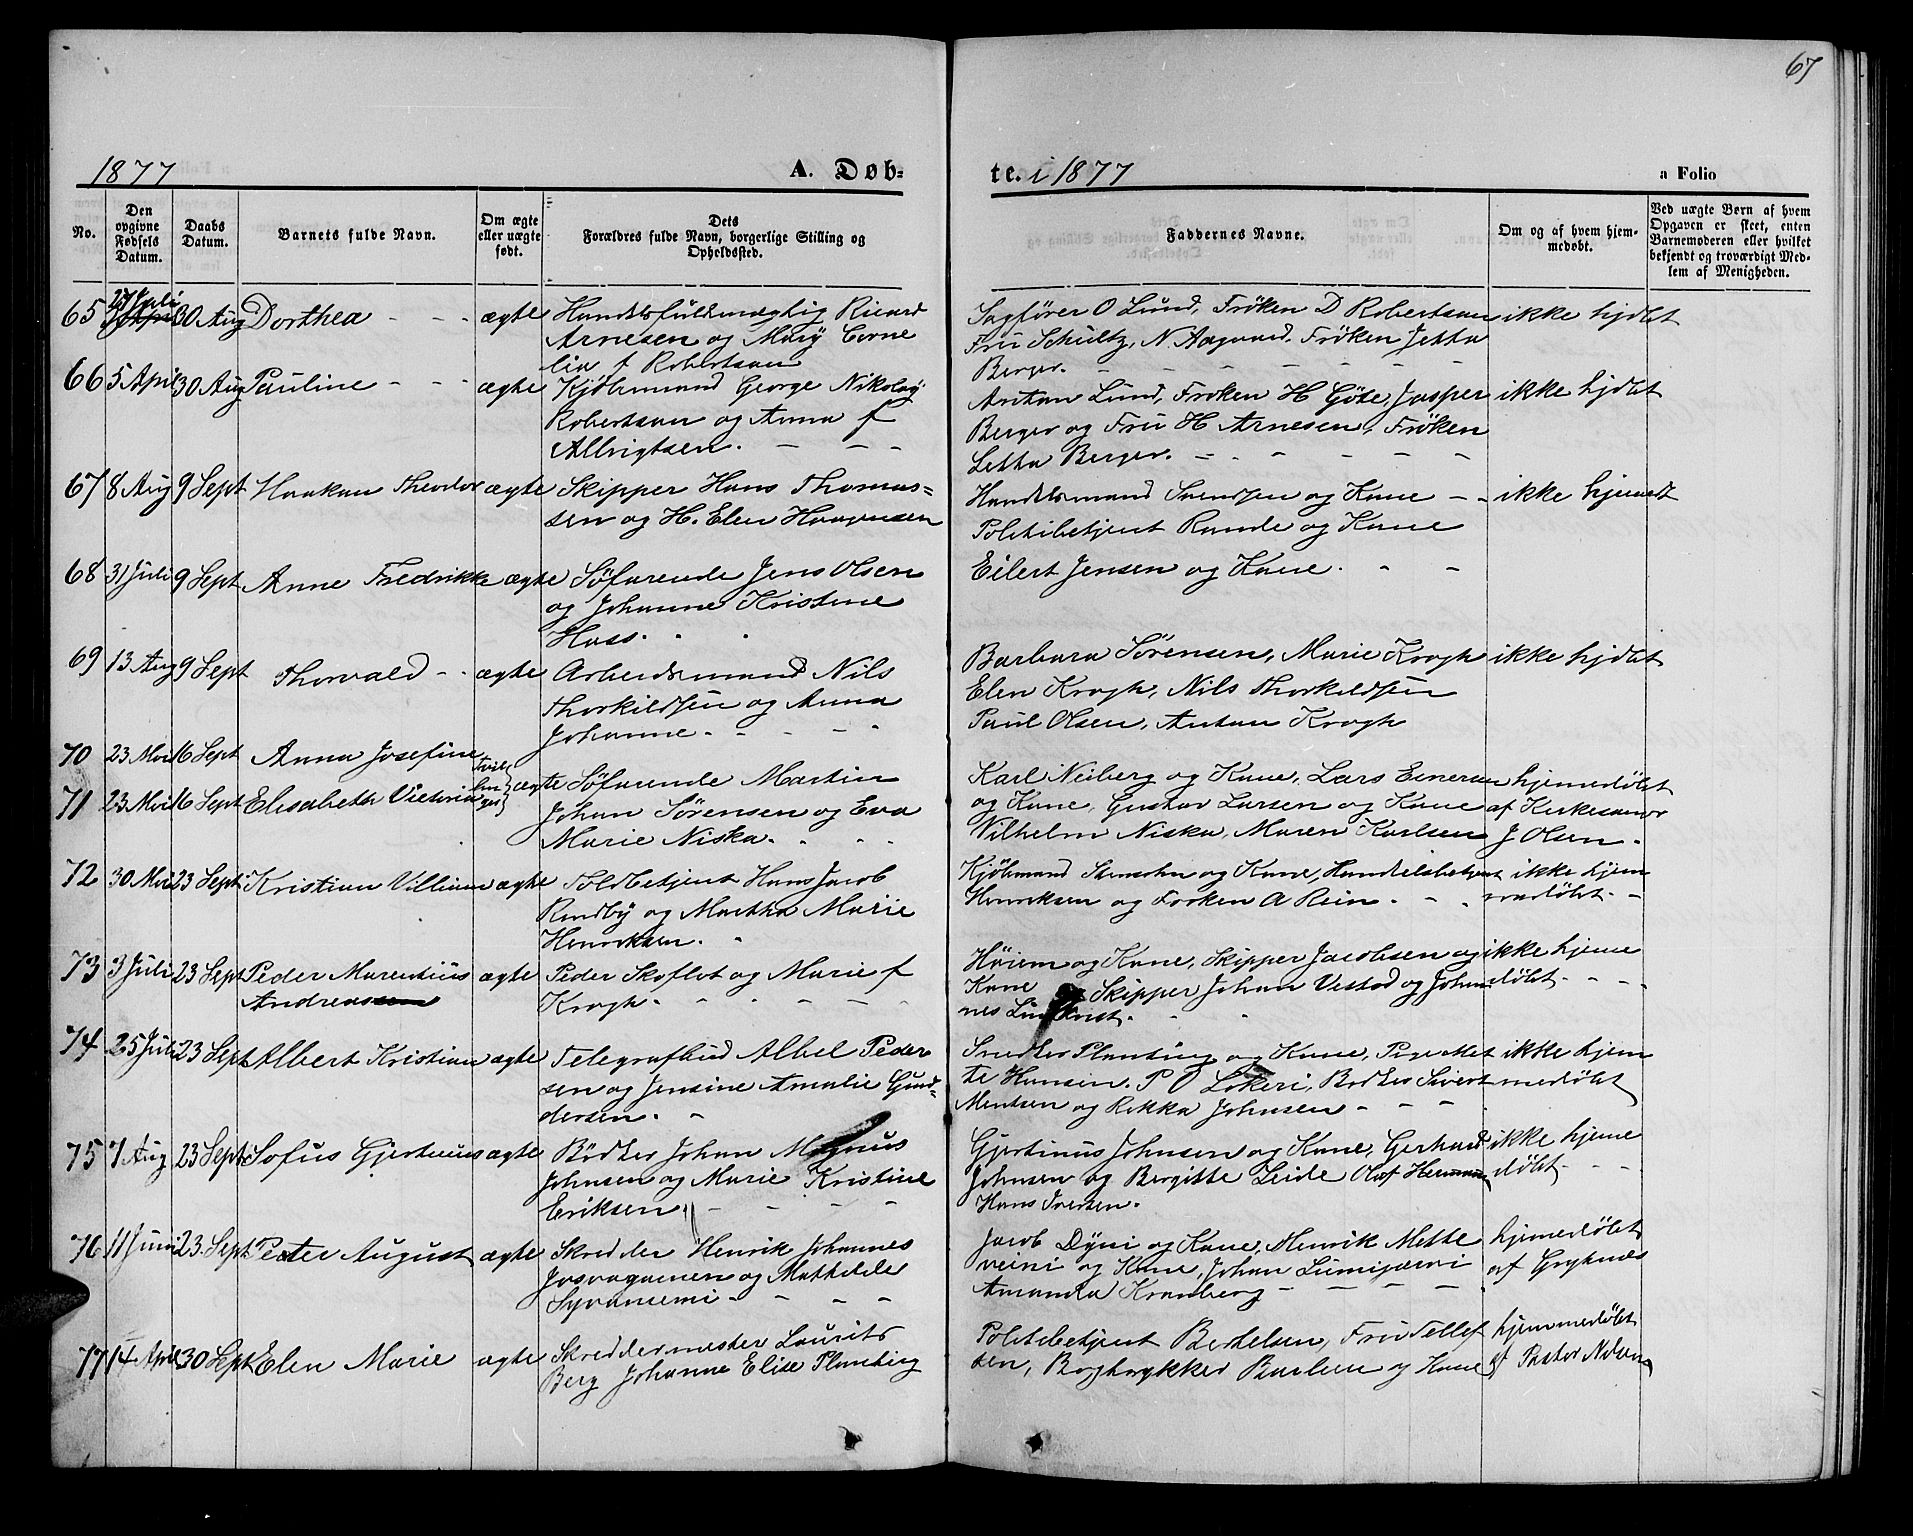 67
1877
A. Døb-
te. i 1877
a Folio
No.
Den opgivne Fødsels Datum.
Daabs Datum.
Barnets fulde Navn.
Om ægte eller uægte født.
Dets Forældres fulde Navn, borgerlige Stilling og Opholdssted.
Faddernes Navne.
Om og af hvem hjemmedøbt.
Ved uægte Børn af hvem Opgaven er skeet, enten Barnemoderen eller hvilket bekjendt og troværdigt Medlem af Menigheden.
65 27 Juli 30 Aug Dorthea - - - ægte Handelsfuldmægtig Ricard
Arnesen og Mary Corne
lia f Robertsen
Sagfører O Lund, Frøken D Robertsen ikke hjdbt
Fru Schultz, N. Aagaard. Frøken Jetta
Berger. - - - - -
66 5 April 30 Aug Pauline - - - ægte Kjøbmand George Nikolay
Robertsen og Anna f
Albrigtsen. - - -
Anton Lund, Frøken H Göte, Jasper ikke hjdbt
Berger og Fru H Arnesen, Frøken
Letta Berger. - - - - -
67 8 Aug 9 Sept Haakan Theodor ægte Skipper Hans Thomas-
sen og H. Elen Haagensen
Handelsmand Svendsen og Kone - - ikke hjemdt
Politibetjent Rande og Kone
68 31 Juli 9 Sept Anne Fredrikke ægte Søfarende Jens Olsen
og Johanne Kristine
Hass. - -
Eilert Jensen og Kone. - -
69 13 Aug 9 Sept Thorvald - - ægte Arbeidsmand Nils
Thorkildsen og Anna
Johanne. - - - -
Barbara Sørensen, Marie Krogh ikke hjdbt
Elen Krogh, Nils Thorkildsen
Paul Olsen, Anton Krogh
70 23 Mai 16 Sept Anna Josefine
71 23 Mai 16 Sept Elisabeth Victoria Tvillinger ægte Søfarende Martin
Johan Sørensen og Eva
Marie Niska. - -
Karl Neiberg og Kone, Lars Einersen hjemedøbt
og Kone, Gustav Larsen og Kone af Kirkesanger
Vilhelm Niska, Maren Karlsen J Olsen.
72 30 Mai 23 Sept Kristian Villiam ægte Toldbetjent Hans Jacob
Rendby og Martha Marie
Henriksen. -
Kjøbmand Stensohn og Kone, Handelsbetjent ikke hjem
Henriksen og Frøken A Rein. - - medøbt -
73 3 Juli 23 Sept Peder Marentius ægte Peder Skoflot og Marie f
Andreassen Krogh. - - - - -
Høiem og Kone, Skipper Jacobsen og ikke hjeme
Kone Skipper Johan Vestad og Johan døbt - - -
nes Lindkvist. - -
74 25 Juli 23 Sept Albert Kristian ægte Telegrafbud Albel Peder
sen og Jensine Amalie Gund-
dersen. -
Snedker Planting og Kone, Pige Met ikke hjem
te Hansen. P O Lokeri, Bødker Sivert medøbt
Mentsen og Rikka Johnsen - - -
75 7 Aug 23 Sept Sofus Gjertinus ægte Bødker Johan Magnus
Johnsen og Marie Kristine
Eriksen - - - -
Gjertinus Johnsen og Kone, Gerhard ikke hjeme
Johnsen og Bergitte Leide Olaf Herman døbt - - -
Hans Iversen.
76 11 Juni 23. Sept Peter August ægte Skredder Henrik Johannes
og Mathilde
- - - -
Jacob Dyni og Kone, Henrik Mette hjemedøbt
veini og Kone, Johan Lumijærvi af
Amanda Kranberg - - -
77 14 April 30 Sept Elen Marie ægte Skreddermester Laurits
Berg Johanne Elise Planting
Politibetjent Berthelsen, Fru Tellef hjemmedøbt
sen, Bogtrykker Barlien og Kone af Pastor Nilsen